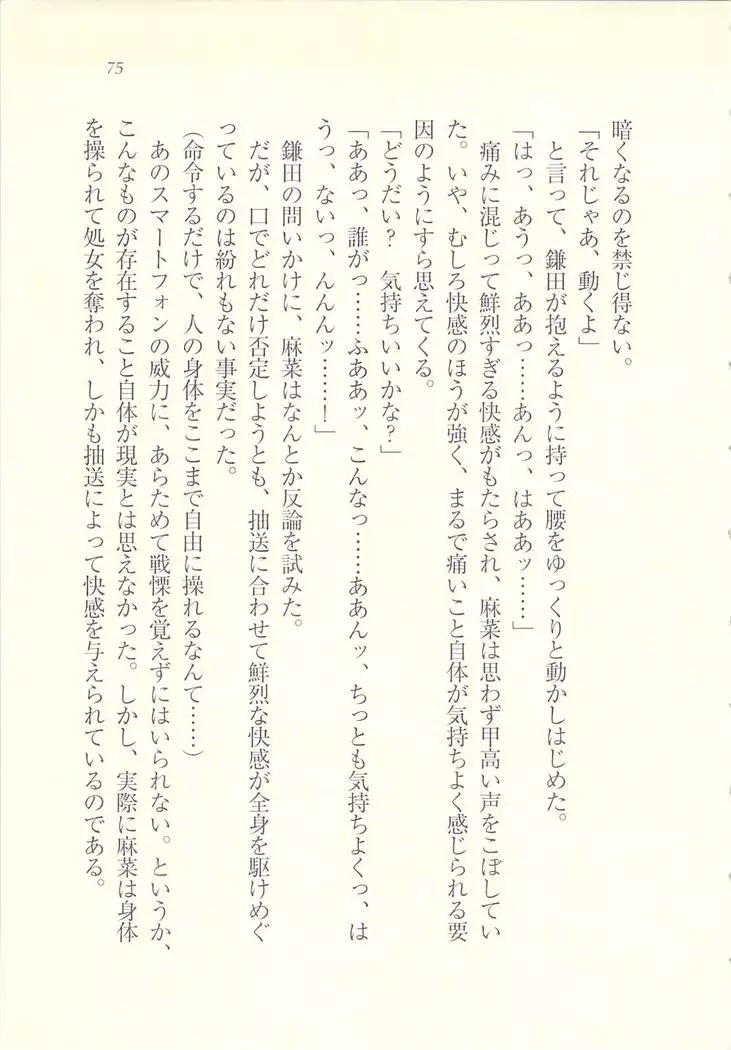 75
暗くなるのを禁じ得ない。
「それじゃあ、動くよ」
と言って、鎌田が抱えるように持って腰をゆっくりと動かしはじめた。
「はっ、あうっ、ああっ……あんっ、はああッ……」
痛みに混じって鮮烈すぎる快感がもたらされ、麻菜は思わず甲高い声をこぼしてい
た。いや、むしろ快感のほうが強く、まるで痛いこと自体が気持ちよく感じられる要
因のようにすら思えてくる。
「どうだい？　気持ちいいかな？」
「ああっ、誰がっ……ふああッ、こんなっ……ああんッ、ちっとも気持ちよくっ、は
うっ、ないっ、んんんッ……！」
鎌田の問いかけに、麻菜はなんとか反論を試みた。
だが、口でどれだけ否定しようとも、抽送に合わせて鮮烈な快感が全身を駆けめぐ
っているのは紛れもない事実だった。
（命令するだけで、人の身体をここまで自由に操れるなんて……）
あのスマートフォンの威力に、あらためて戦慄を覚えずにはいられない。というか、
こんなものが存在すること自体が現実とは思えなかった。しかし、実際に麻菜は身体
を操られて処女を奪われ、しかも抽送によって快感を与えられているのである。